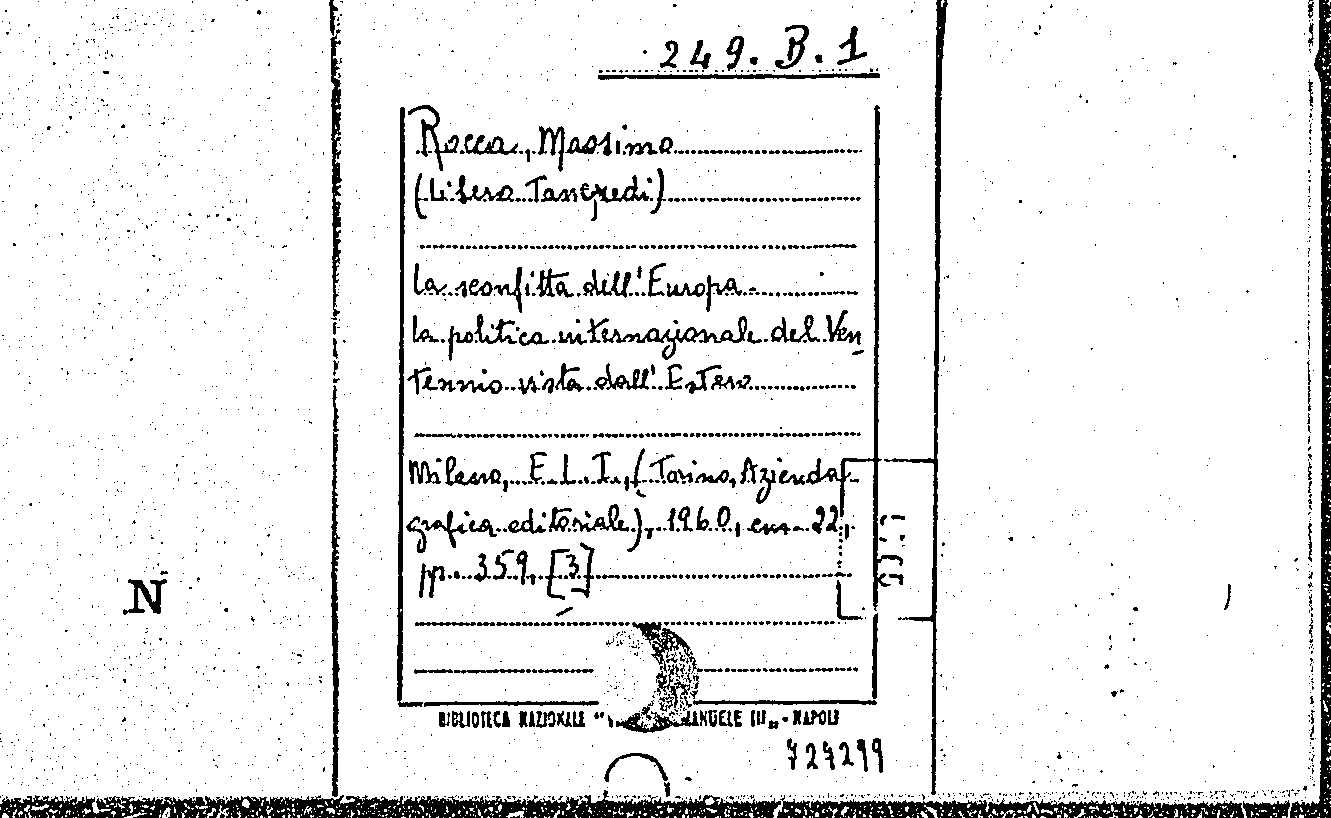 249. B. 1
Rocca, Massimo
(Libero Tancredi)
La sconfitta dell'Europa -
la politica internazionale del Ven
tennio vista dall'Estero
Milano, E. L. I., (Torino, Azienda
grafica editoriale), 1960, cm. 22,
pp. 359, [3]
N
BIBLIOTECA NAZIONALE " ANUELE III„ - NAPOLI
727299